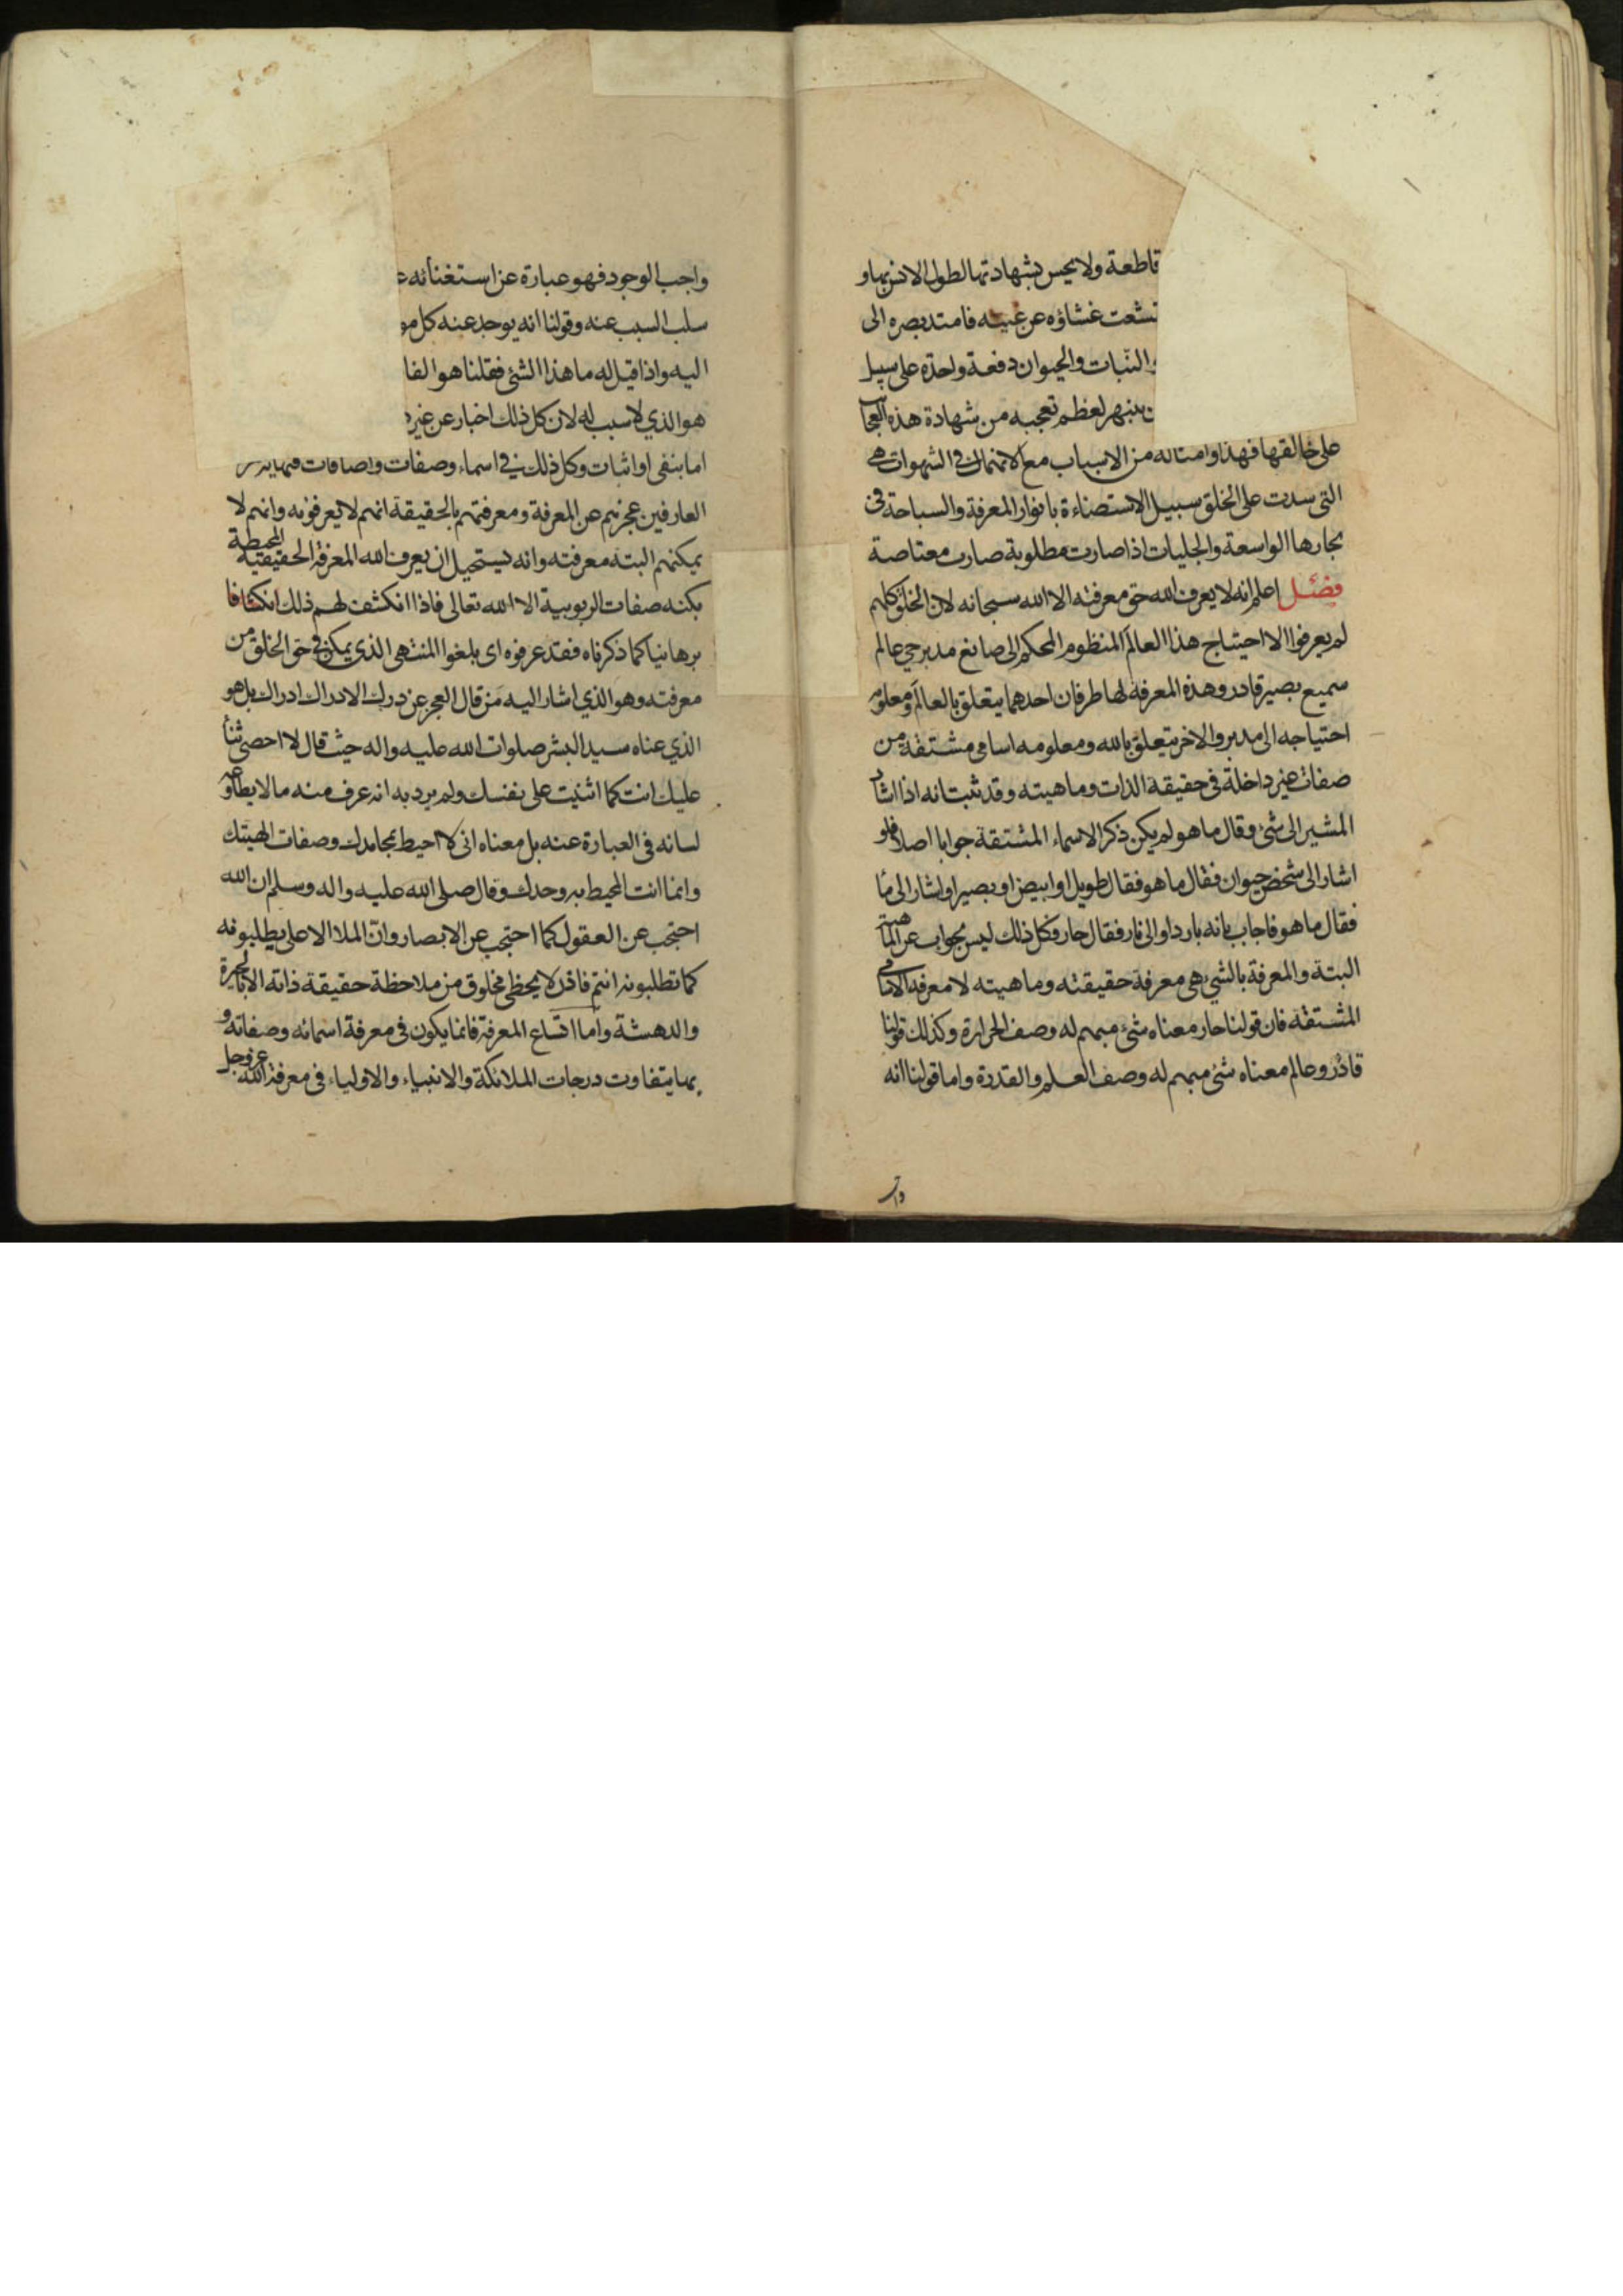 قاطعة ولا يحس بشهادتها لطول الانس بها و
نشعت غشاؤه عن عينه فامتد بصره الى
والنبات والحيوان دفعة واحدة على سبيل
ينبهر لعظم تعجبه من شهادة هذه العجائب
على خالقها فهذا وامثاله من الاسباب مع الانهماك في الشهوات هي
التي سدت على الخلق سبيل الاستضاءة بانوار المعرفة والسباحة في
بحارها الواسعة والجليات اذا صارت مطلوبة صارت معتاصة
فصل اعلم انه لا يعرف الله حق معرفته الا الله سبحانه لان الخلق كلهم
لم يعرفوا الا احتياج هذا العالم المنظوم المحكم الى صانع مدبر حي عالم
سميع بصير قادر وهذه المعرفة لها طرفان احدهما يتعلق بالعالم ومعلومه
احتياجه الى مدبر والاخر يتعلق بالله ومعلومه اسامي مشتقة من
صفات غير داخلة في حقيقة الذات وماهيته وقد ثبت انه اذا اشار
المشير الى شئ وقال ما هو لم يكن ذكر الاسماء المشتقة جوابا اصلا فلو
اشار الى شخص حيوان فقال ما هو فقال طويل او ابيض او بصير او اشار الى ماء
فقال ما هو فاجاب بانه بارد او الى نار فقال حار فكل ذلك ليس بجواب عن الماهية
البتة والمعرفة بالشئ هي معرفة حقيقته وماهيته لا معرفة الاسامي
المشتقة فان قولنا حار معناه شئ مبهم له وصف الحرارة وكذلك قولنا
قادر وعالم معناه شئ مبهم له وصف العلم والقدرة واما قولنا انه
واجب الوجود فهو عبارة عن استغنائه
سلب السبب عنه وقولنا انه يوجد عنه كل
اليه واذا قيل له ما هذا الشئ فقلنا هو
هو الذي لا سبب له لان كل ذلك اخبار عن
اما بنفي او اثبات وكل ذلك في اسماء وصفات واضافات
العارفين عجزهم عن المعرفة ومعرفتهم بالحقيقة انهم لا يعرفونه وانهم لا
يمكنهم البتة معرفته وانه يستحيل ان يعرف الله المعرفة الحقيقية المحيطة
بكنه صفات الربوبية الا الله تعالى فاذا انكشف لهم ذلك انكشافا
برهانيا كما ذكرناه فقد عرفوه اى بلغوا المنتهى الذي يمكن في حق الخلق من
معرفته وهو الذي اشار اليه من قال العجز عن درك الادراك ادراك بل هو
الذي عناه سيد البشر صلوات الله عليه واله حيث قال لا احصي ثناء
عليك انت كما اثنيت على نفسك ولم يرد به انه عرف منه ما لا يطاوعه
لسانه في العبارة عنه بل معناه اني لا احيط بمحامدك وصفات الهيتك
وانما انت المحيط به وحدك وقال صلى الله عليه واله وسلم ان الله
احتجب عن العقول كما احتجب عن الابصار وان الملا الاعلى يطلبونه
كما تطلبونه انتم فاذن لا يحظى مخلوق من ملاحظة حقيقة ذاته الا بالحيرة
والدهشة واما اتساع المعرفة فانما يكون في معرفة اسمائه وصفاته و
بها يتفاوت درجات الملائكة والانبياء والاولياء في معرفة الله عز وجل